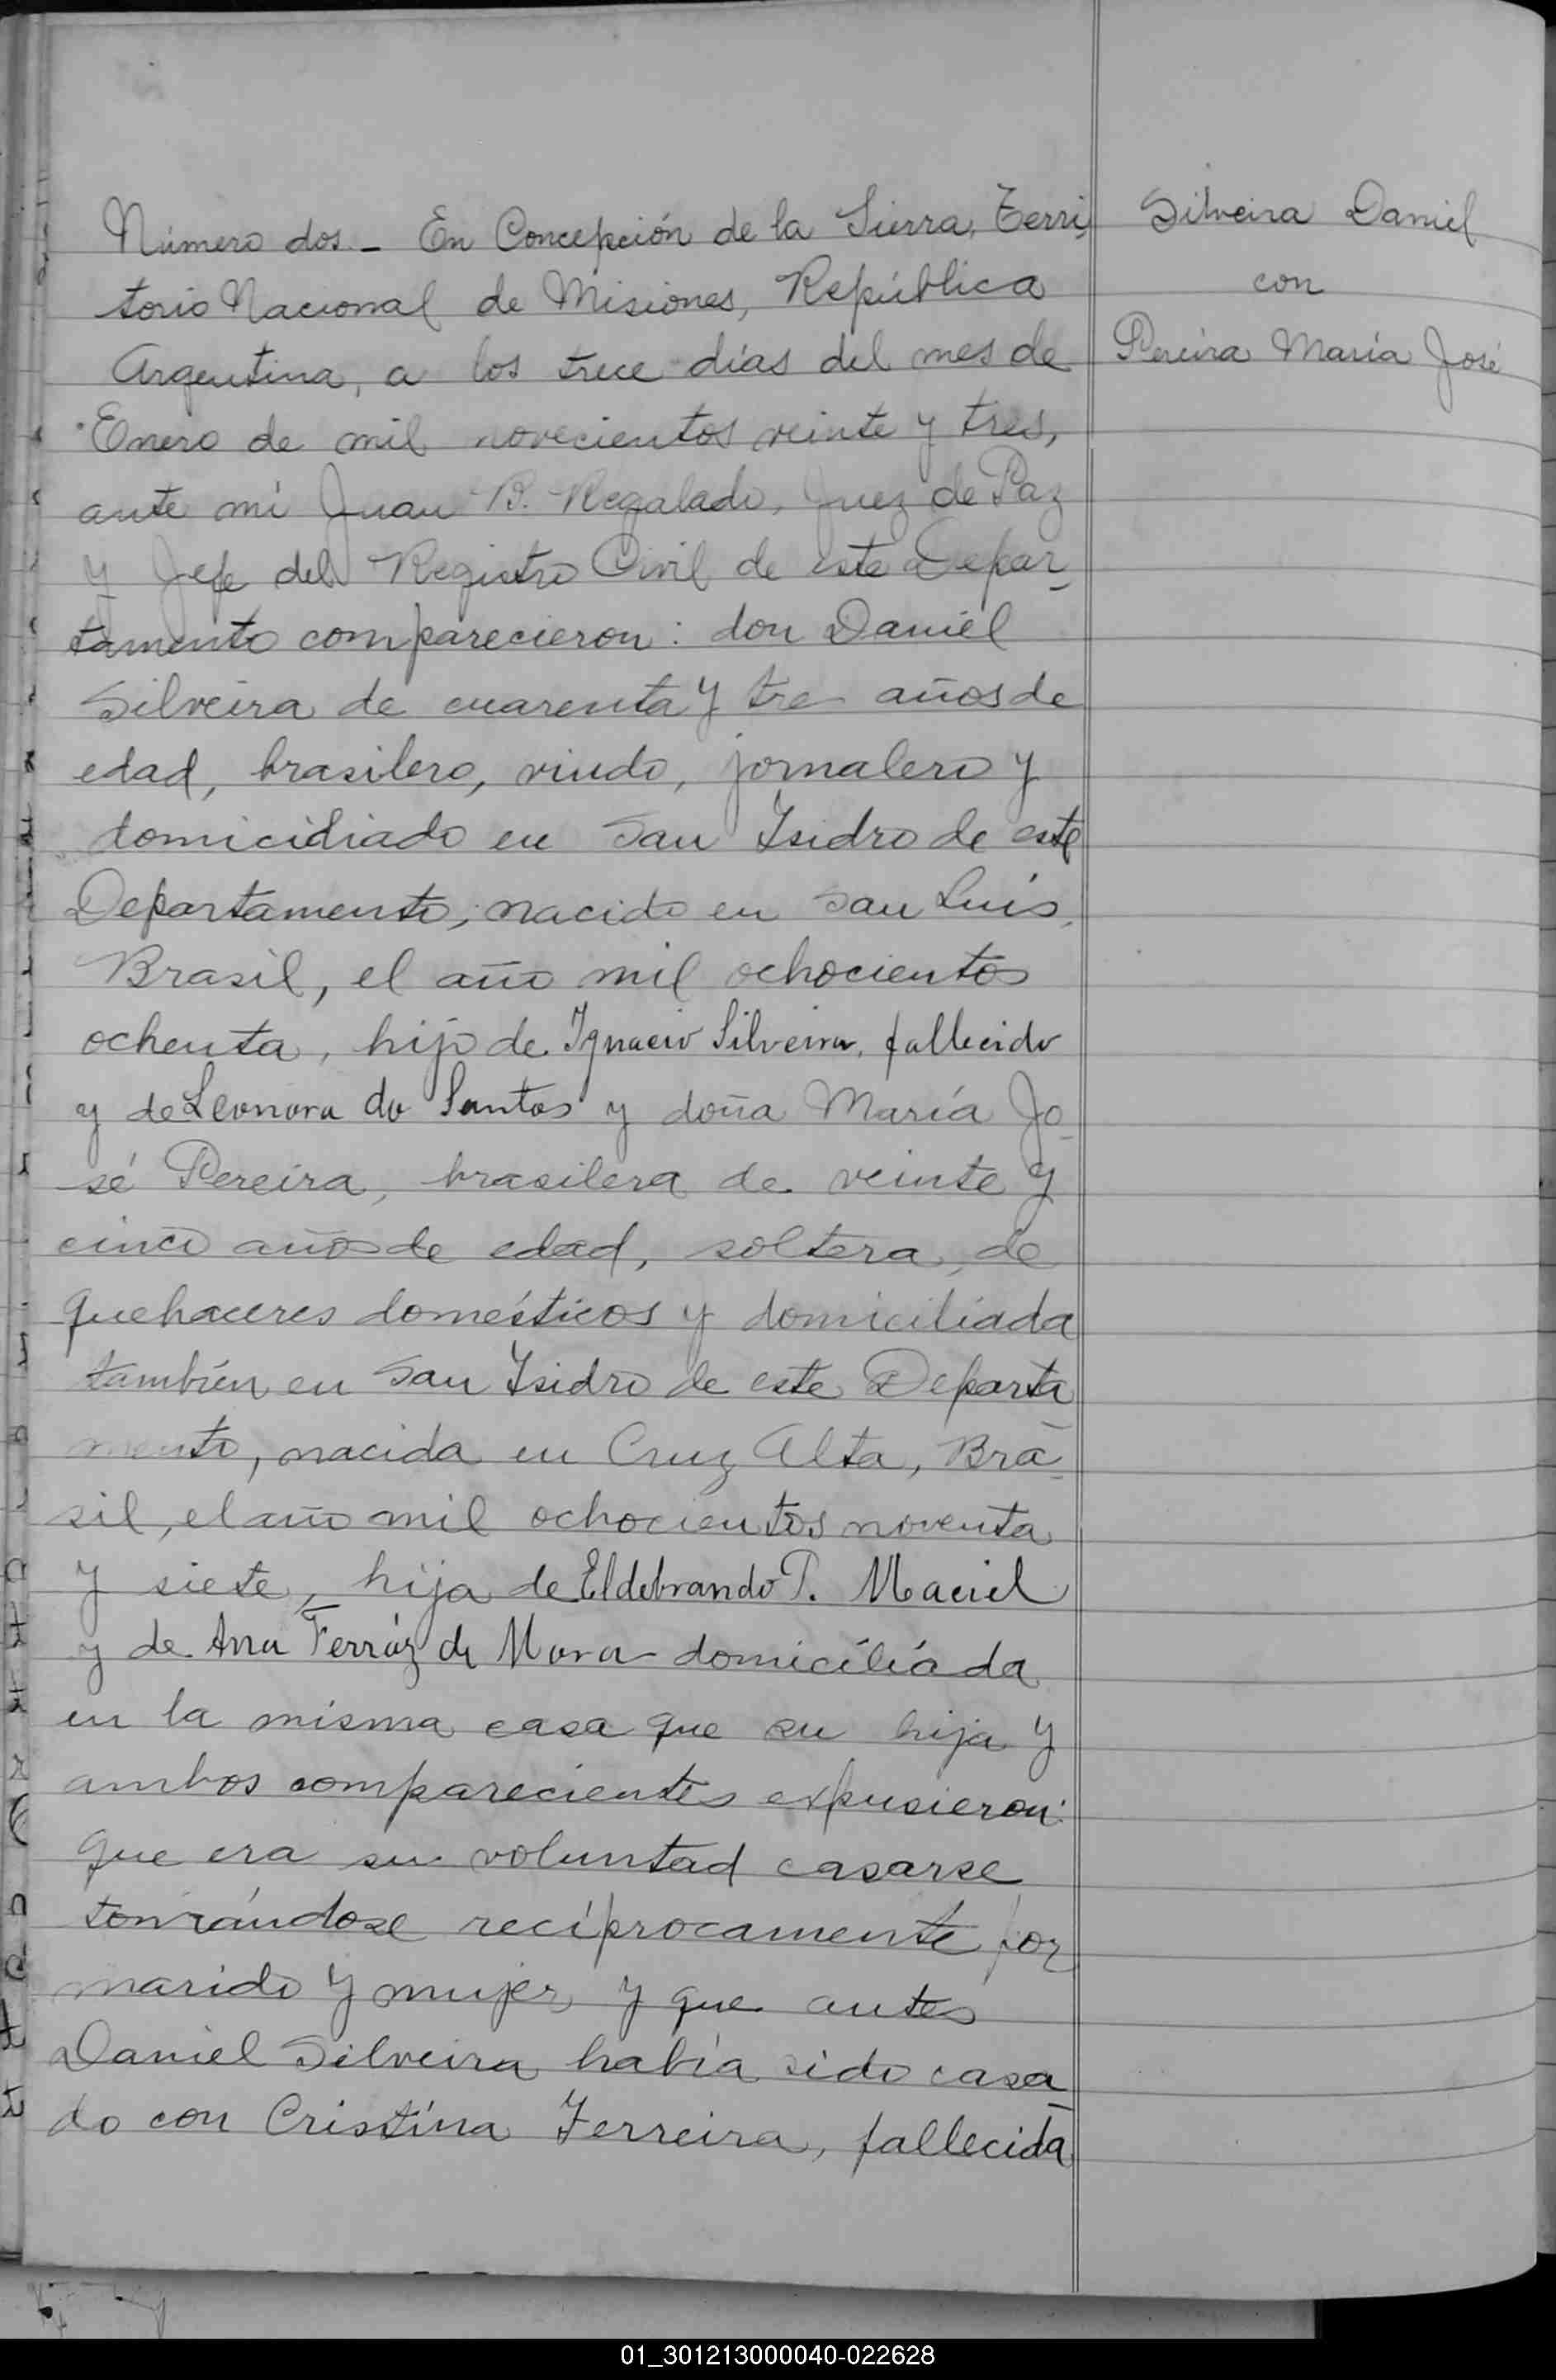 Número dos - En Concepción de la Sierra, Terri-
torio Nacional de Misiones, República
Argentina, a los trece días del mes de
Enero de mil novecientos veinte y tres,
ante mí Juan B. Regalado, Juez de Paz
y Jefe del Registro Civil de este Depar-
tamento comparecieron: don Daniel
Silveira de cuarenta y tre años de
edad, brasilero, viudo, jornalero y
domicidiado en San Isidro de este
Departamento, nacido en San Luis,
Brasil, el año mil ochocientos
ochenta, hijo de Ignacio Silveira, fallecido
y de Leonora do Santos y doña María Jo-
sé Pereira, brasilera de veinte y
cinco años de edad, soltera, de
quehaceres domésticos y domiciliada
también en San Isidro de este Departa-
mento, nacida en Cruz Alta, Bra-
sil, el año mil ochocientos noventa
y siete, hija de Eldebrando P. Maciel
y de Ana Ferráz de Mora domiciliada
en la misma casa que su hija y
ambos comparecientes expusieron:
que era su voluntad casarse
tomándose recíprocamente por
marido y mujer, y que antes
Daniel Silveira había sido casa-
do con Cristina Ferreira, fallecida
Silveira Daniel
con
Pereira María José
01_301213000040-022628